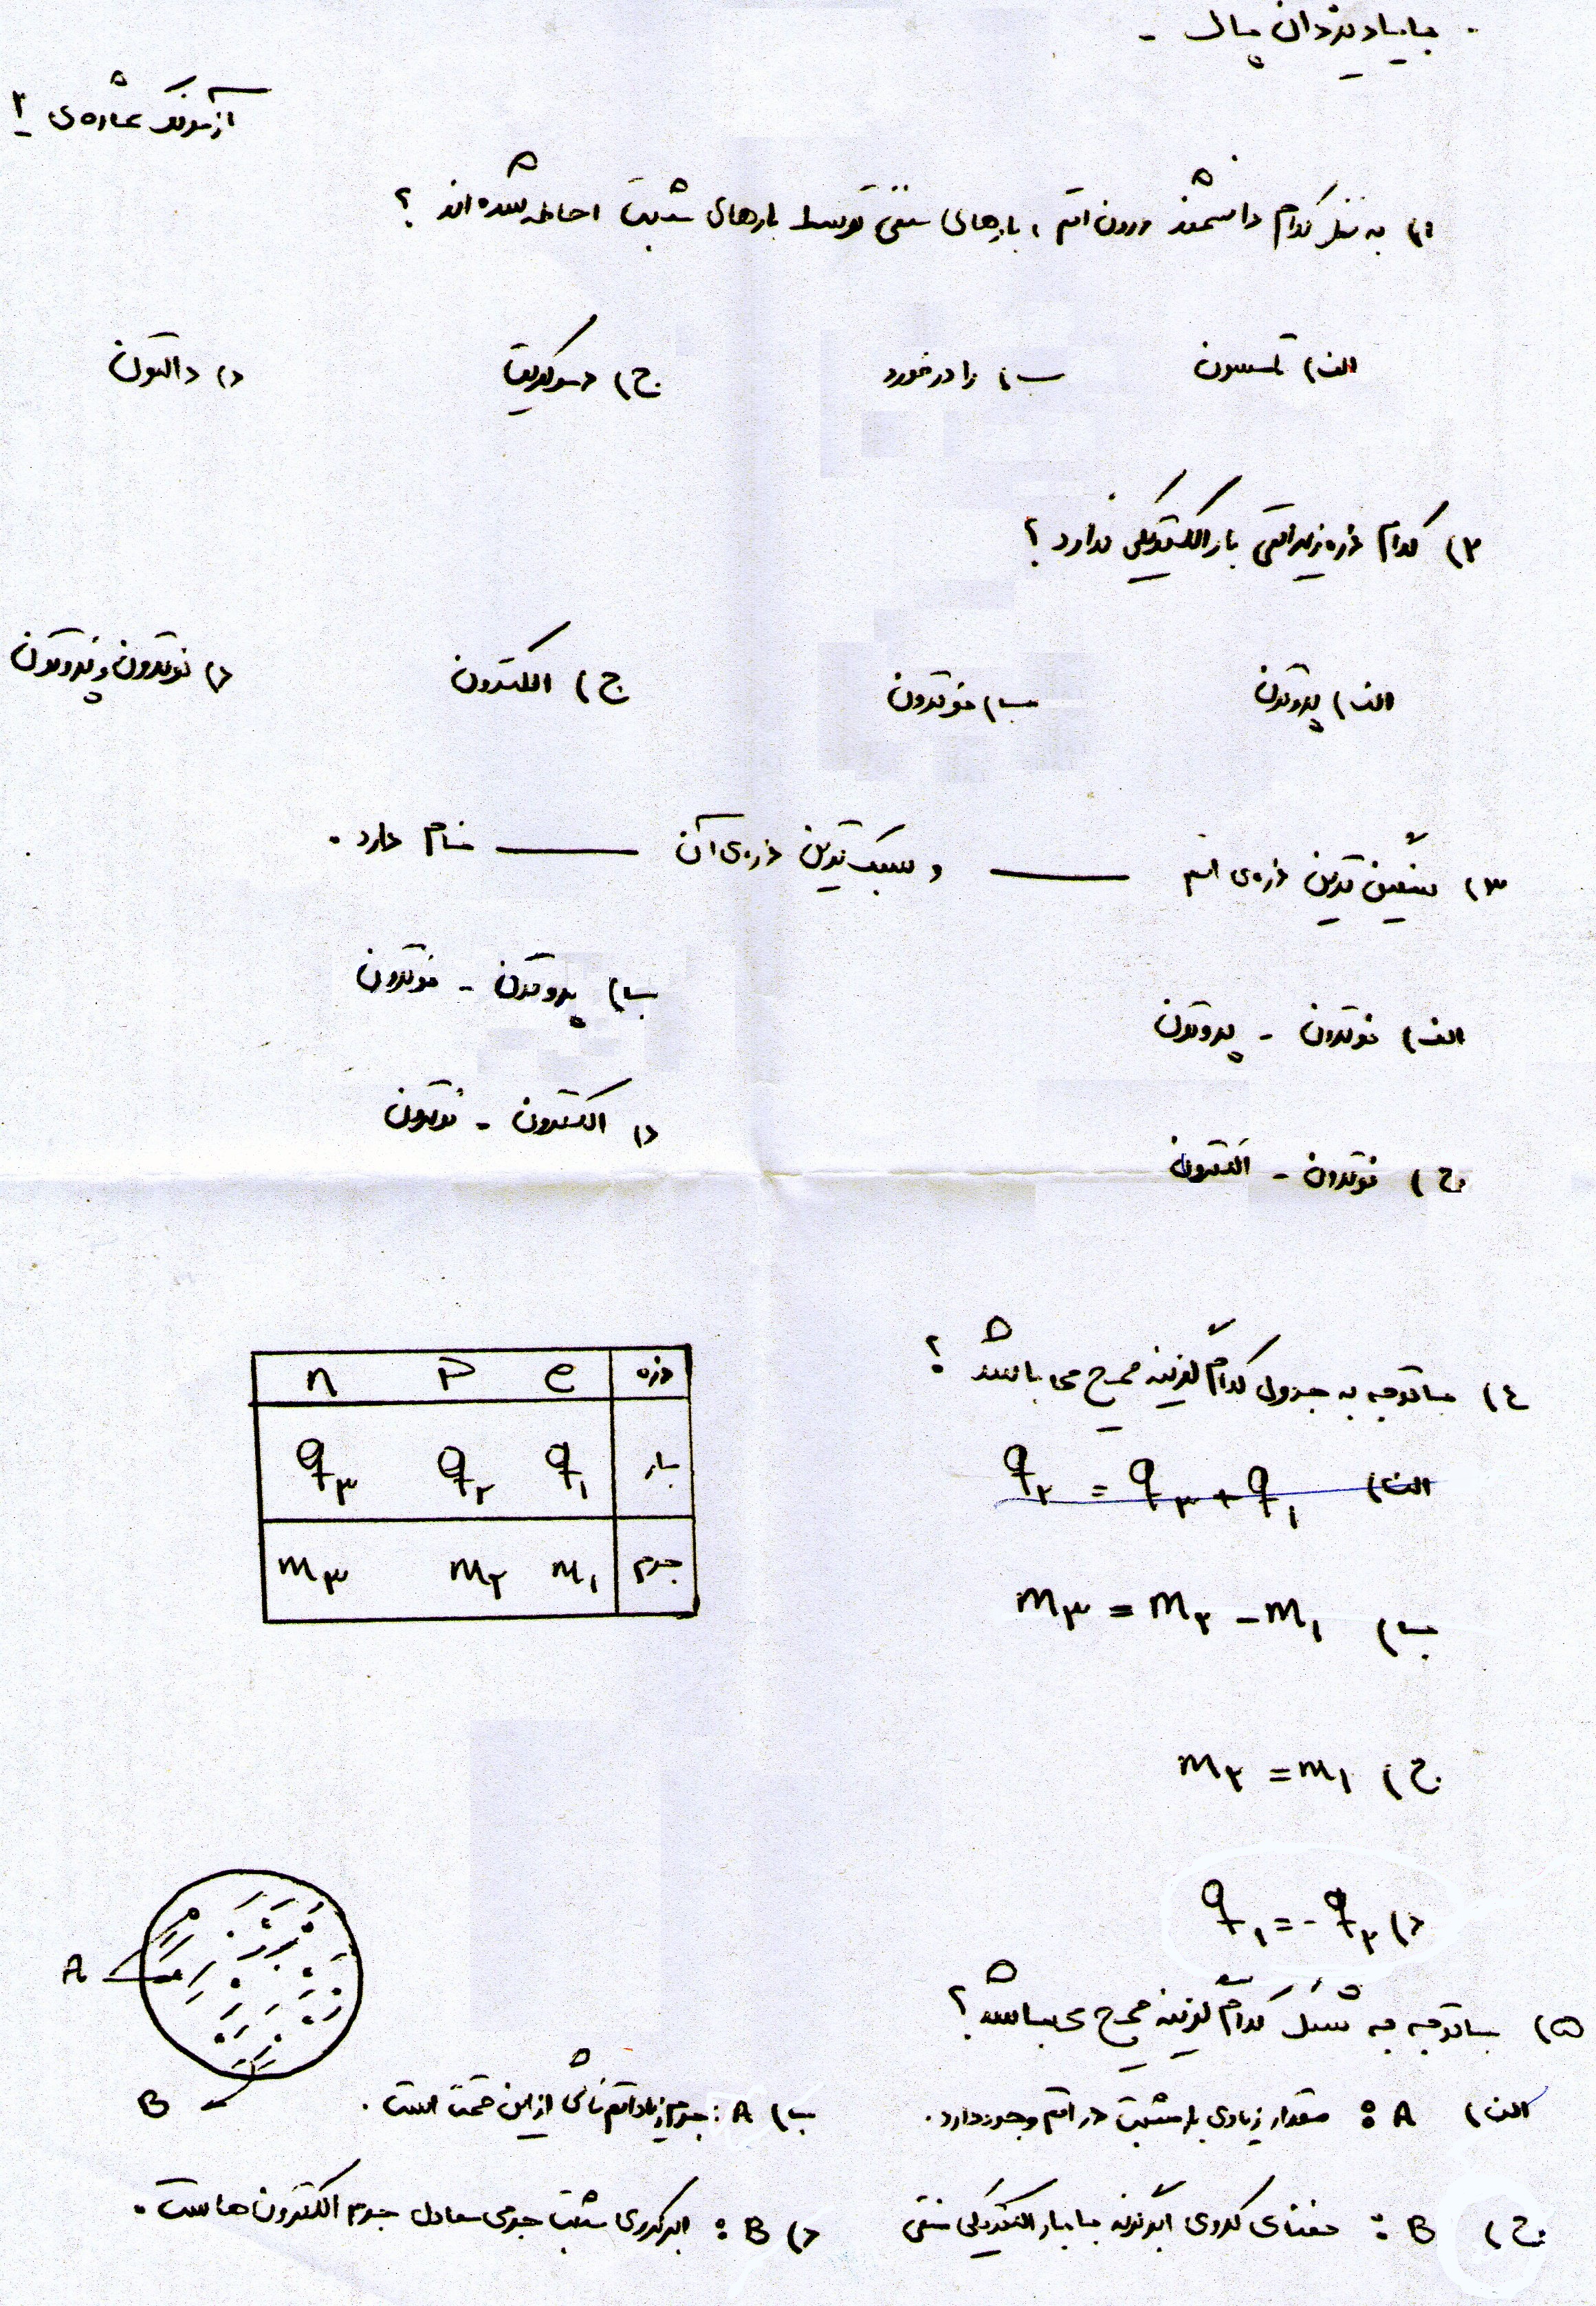 با یاد یزدان پاک -
آزمونک شماره‌ی ۲
۱) به نظر کدام دانشمند درون اتم ، بارهای منفی توسط بارهای مثبت احاطه شده اند ؟
الف) تامسون ب) رادرفورد ج) دموکریت د) دالتون
۲) کدام ذره زیراتمی بار الکتریکی ندارد ؟
الف) پروتون ب) نوترون ج) الکترون د) نوترون و پروتون
۳) سنگین ترین ذره‌ی اتم ـــــ و سبک ترین ذره‌ی آن ـــــ نام دارد .
الف) نوترون - پروتون ب) پروتون - نوترون
ج) نوترون - الکترون د) الکترون - نوترون
۴) با توجه به جدول کدام گزینه صحیح می باشد ؟
ذره e P n
بار q۱ q۲ q۳
جرم m۱ m۲ m۳
الف) q۲ = q۳ + q۱
ب) m۳ = m۲ - m۱
ج) m۲ = m۱
د) q۱ = - q۲
۵) با توجه به شکل کدام گزینه صحیح می باشد ؟
A
B
الف) A : مقدار زیادی بار مثبت در اتم وجود دارد . ب) A : جرم زیاد اتم ناشی از این قسمت است .
ج) B : فضای کروی ابرگونه با بار الکتریکی منفی د) B : ابر کروی مثبت جرمی معادل جرم الکترون هاست .